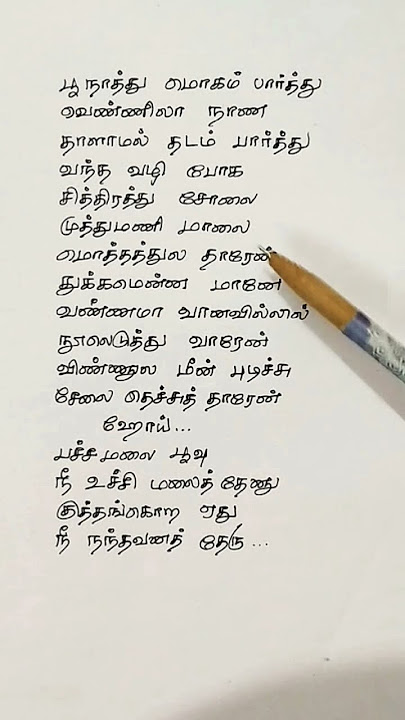 பூ நாத்து மொகம் பார்த்து
வெண்ணிலா நாண
தாளாமல் தடம் பார்த்து
வந்த வழி போக
சித்திரத்து சோலை
முத்துமணி மாலை
மொத்தத்துல தாரேன்
துக்கமென்ன மானே
வண்ணமா வானவில்லால்
நூலெடுத்து வாரேன்
விண்ணுல மீன் புடிச்சு
சேலை தெச்சுத் தாரேன்
ஹோய்...
பச்சமலை பூவு
நீ உச்சி மலைத் தேனு
குத்தங்கொற ஏது
நீ நந்தவனத் தேரு...